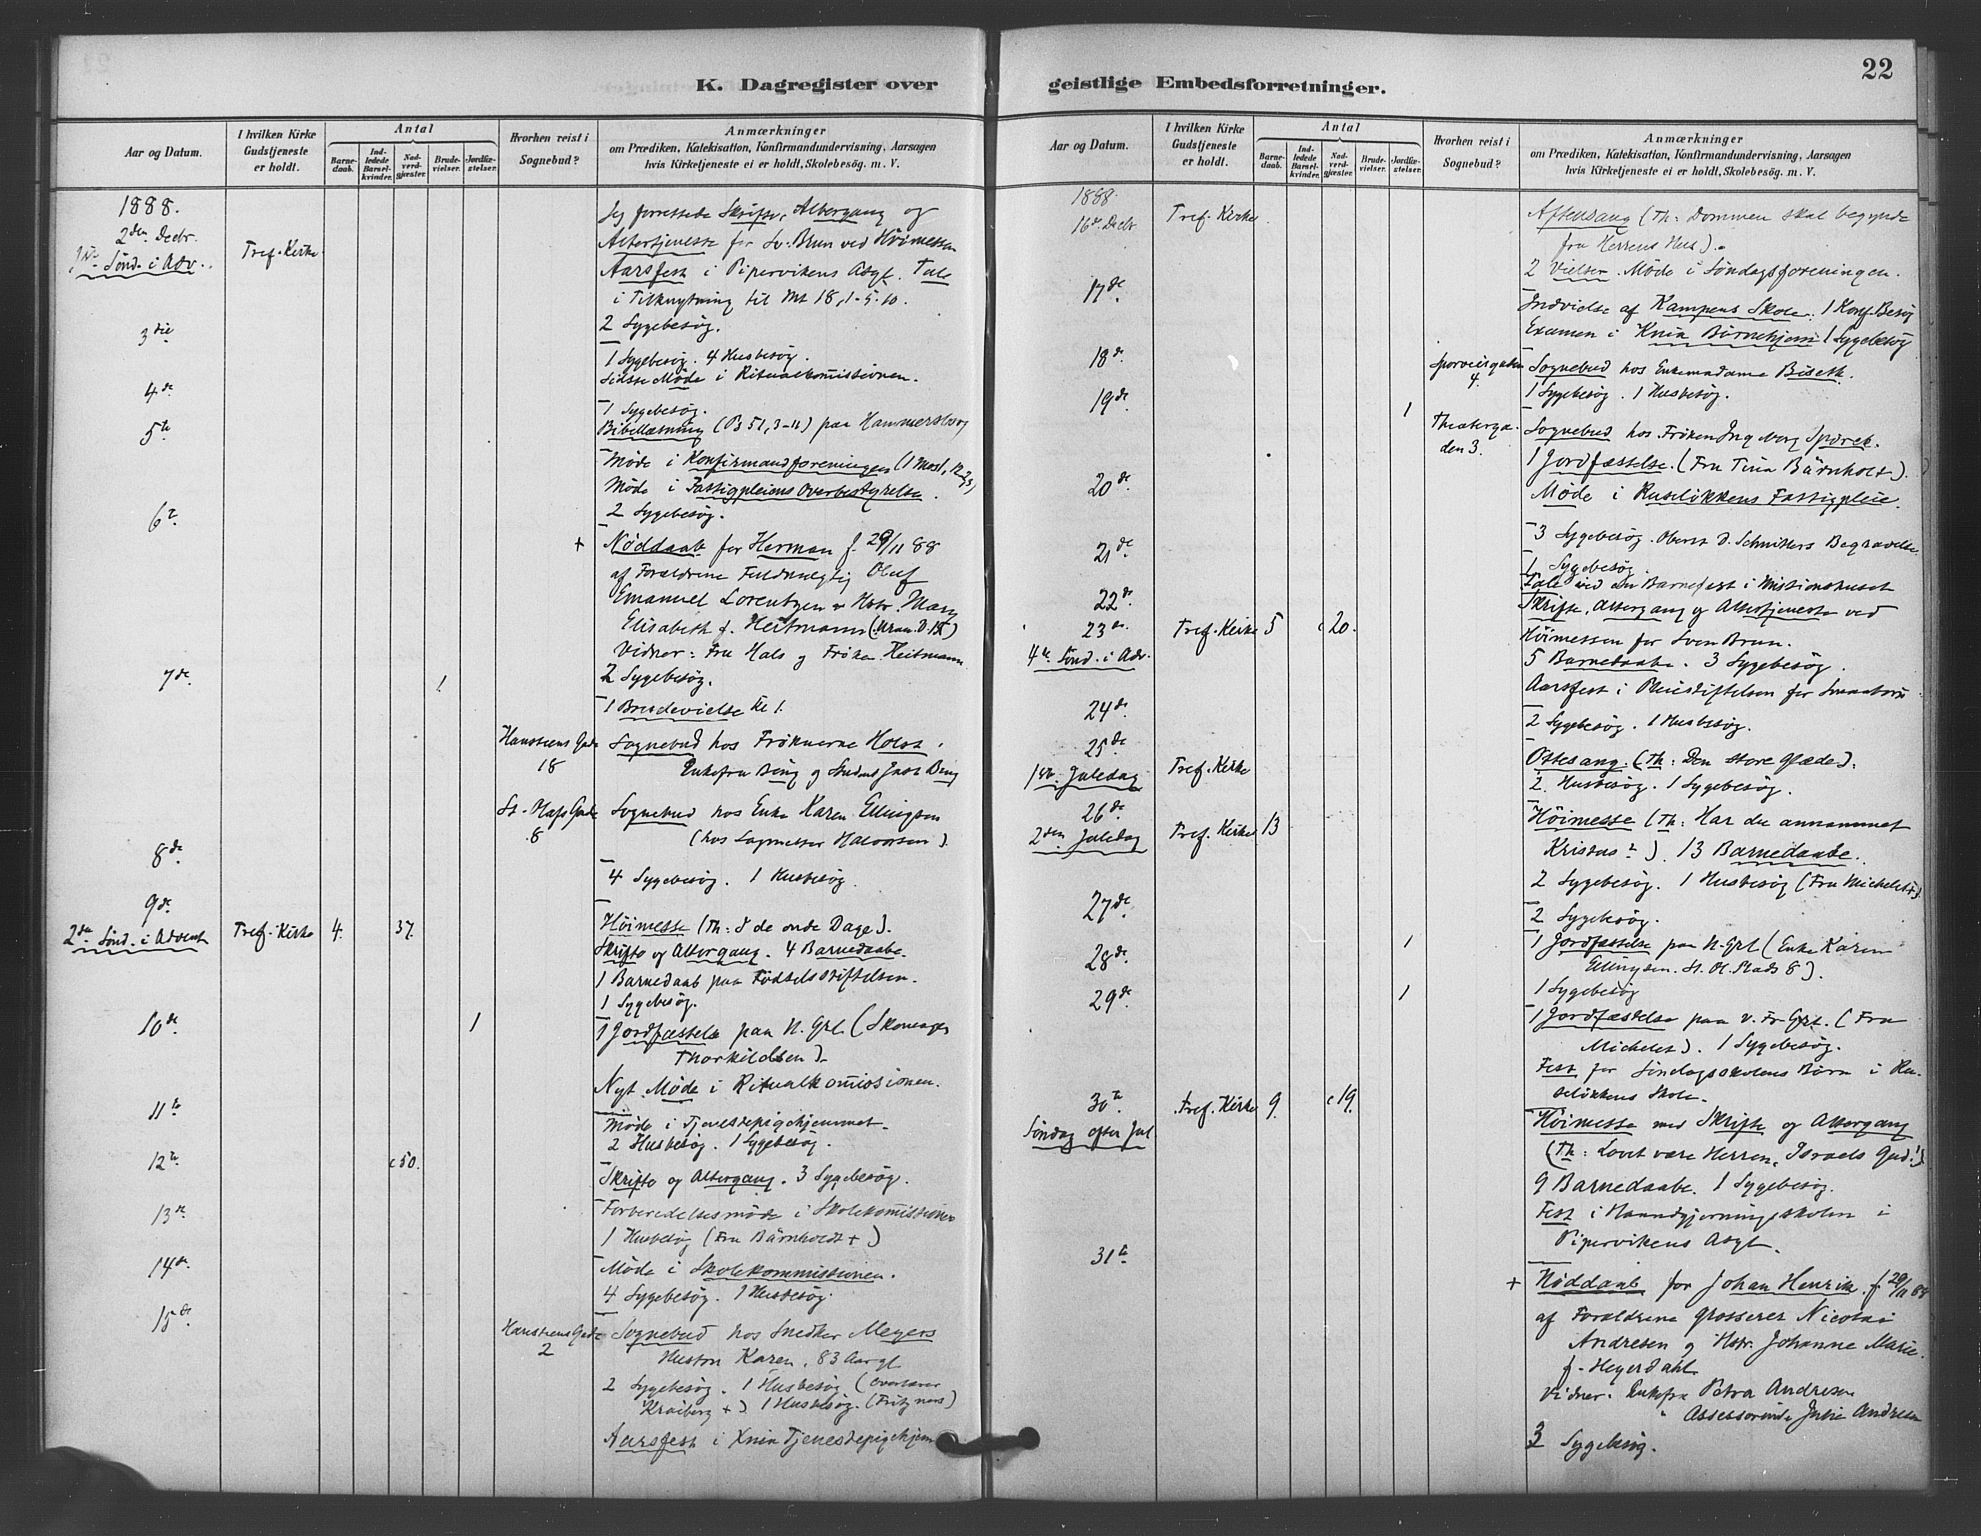 K. Dagregister over
Aar og Datum.
I hvilken Kirke Gudstjeneste er holdt.
Antal
Barne-daab.
Ind-ledede Barsel-kvinder.
Nad-verd-gjæster.
Brude-vielser.
Jordfæ-stelser.
Hvorhen reist i Sognebud?
Anmærkninger
om Prædiken, Katekisation, Konfirmandundervisning, Aarsagen
hvis Kirketjeneste ei er holdt, Skolebesøg. m. V.
1888.
2den Decbr.
1ste Sønd. i Adv.
Tref. Kirke
Jeg forrettede Skrifte, Altergang og
Altertjeneste for Sv. Brun ved Høimessen
Aarsfest i Pipervikens Asyl. Tale
i Tilknytning til Mt 18, 1-5. 10.
2 Sygebesøg.
3die
1 Sygebesøg. 4 Husbesøg.
Sidste Møde i Ritualkommissionen.
4de
1 Sygebesøg.
5te
Bibellæsning (Ps 51, 3-11) paa Hammersborg
Møde i Konfirmandforeningen (1 Mos 1,
Møde i Fattigpleiens Overbestyrelse.
2 Sygebesøg.
6te
+ Nøddaab for Herman f. 29/11 88
af Forældrene Fuldmægtig Oluf
Emanuel Lorentzen og Hstr. Mary
Elisabeth f. Heitmann
Vidner: Fru Hals og Frøken Heitmann
2 Sygebesøg.
7de
1
1 Brudevielse Kl 1.
Hanstens Gade
18
Sognebud hos Frøknerne Holst,
Enkefru Bing og Student Just Bing
St. Olafs Gade
8
Sognebud hos Enke Karen Ellingsen
(hos Halvorsen).
8de
4 Sygebesøg. 1 Husbesøg.
9de
2den Sønd. i Advent
Tref. Kirke
4.
37.
Høimesse (Th: I de onde Dage).
Skrifte og Altergang. 4 Barnedaabe.
1 Barnedaab paa Fødselsstiftelsen.
1 Sygebesøg.
10de
1
1 Jordfæstelse paa N. Grl. (
Thorkildsen).
Nyt Møde i Ritualkommissionen.
11te
Møde i Tjenestepigehjemmet.
2 Husbesøg. 1 Sygebesøg.
12te
c 50.
Skrifte og Altergang. 3 Sygebesøg.
13de
Forberedelsesmøde i Skolekommissionen
1 Husbesøg (Fru Bärnholdt +)
14de
Møde i Skolekommissionen.
4 Sygebesøg. 1 Husbesøg.
15de
Hanstens Gade
2
Sognebud hos Snedker Meyers
Hustru Karen, 83 Aar gl.
2 Sygebesøg. 1 Husbesøg (Overlærer
+) 1 Husbesøg. (Fritzners)
Aarsfest i Xnia Tjenestepigehjem
geistlige Embedsforretninger.
22
Aar og Datum.
I hvilken Kirke Gudstjeneste er holdt.
Antal
Barne-daab.
Ind-ledede Barsel-kvinder.
Nad-verd-gjæster.
Brude-vielser.
Jordfæ-stelser.
Hvorhen reist i Sognebud?
Anmærkninger
om Prædiken, Katekisation, Konfirmandundervisning, Aarsagen
hvis Kirketjeneste ei er holdt, Skolebesøg. m. V.
1888.
16de Decbr
Tref. Kirke
Aftensang (Th: Dommen skal begynde
fra Herrens Hus).
2 Vielser. Møde i Søndagsforeningen.
17de
Indvielse af Kampens Skole. 1 Konf. Besøg
Examen i Xnia Børnehjem 1 Sygebesøg
18de
Sporveisgaden
4.
Sognebud hos Enkemadame Biseth.
1 Sygebesøg. 1 Husbesøg.
19de
1
Theaterga-
den 3.
Sognebud hos Frøken Ingeborg Spørck.
1 Jordfæstelse. (Fru Tina Bärnholdt).
Møde i Ruseløkkens Fattigpleie.
20de
3 Sygebesøg. Oberst D. Schnitlers Begravelse.
21de
1 Sygebesøg.
22de
Tale ved en Barnefest i Missionshuset
23de
4de Sønd. i Adv.
Tref. Kirke
5
c 20.
Skrifte, Altergang og Altertjeneste ved
Høimessen for Sven Brun.
5 Barnedaabe. 3 Sygebesøg.
Aarsfest i Pleiestiftelsen for Smaabørn
24de
2 Sygebesøg. 1 Husbesøg.
25de
1ste Juledag
Tref. Kirke
Ottesang. (Th: Den store Glæde).
2 Husbesøg. 1 Sygebesøg.
26de
2den Juledag
Tref. Kirke
13
Høimesse (Th: Har du annammet
Kristus?). 13 Barnedaabe.
2 Sygebesøg. 1 Husbesøg (Fru Michelet +).
27de
2 Sygebesøg.
28de
1
1 Jordfæstelse paa N. Grl (Enke Karen
Ellingsen. St. Ol. Plads 8).
1 Sygebesøg
29de
1
1 Jordfæstelse paa V. Fr. Grl. (Fru
Michelet). 1 Sygebesøg.
Fest for Søndagsskolens Børn i Ru-
seløkkens Skole.
30te
Søndag efter Jul
Tref. Kirke
9.
c 19.
Høimesse med Skrifte og Altergang
(Th: Lovet være Herren, Israels Gud!).
9 Barnedaabe. 1 Sygebesøg.
Fest i Haandgjerningsskolen i
Pipervikens Asyl.
31te
+ Nøddaab for Johan Henrik f. 29/11 88
af Forældrene Grosserer Nicolai
Andresen og Hstr. Johanne Marie
f. Heyerdahl
Vidner: Enkefru Petra Andresen
" Assessorinde Julie Andresen
3 Sygebesøg.